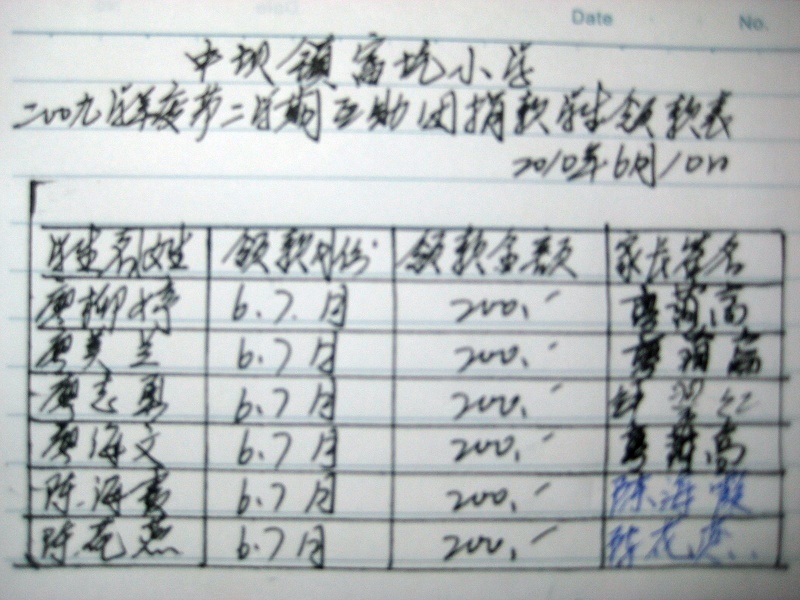 Date No.
中坝镇富圪小学
二00九学年度第二学期互助团捐款学生领款表
2010年6月10日
学生名姓 领款月份 领款金额 家长签名
廖柳婷 6.7.月 200.-
廖美兰 6.7月 200.-
廖志勇 6.7月 200.-
廖海文 6.7月 200.-
陈海霞 6.7月 200.- 陈海霞
陈花燕 6.7月 200.- 陈花燕